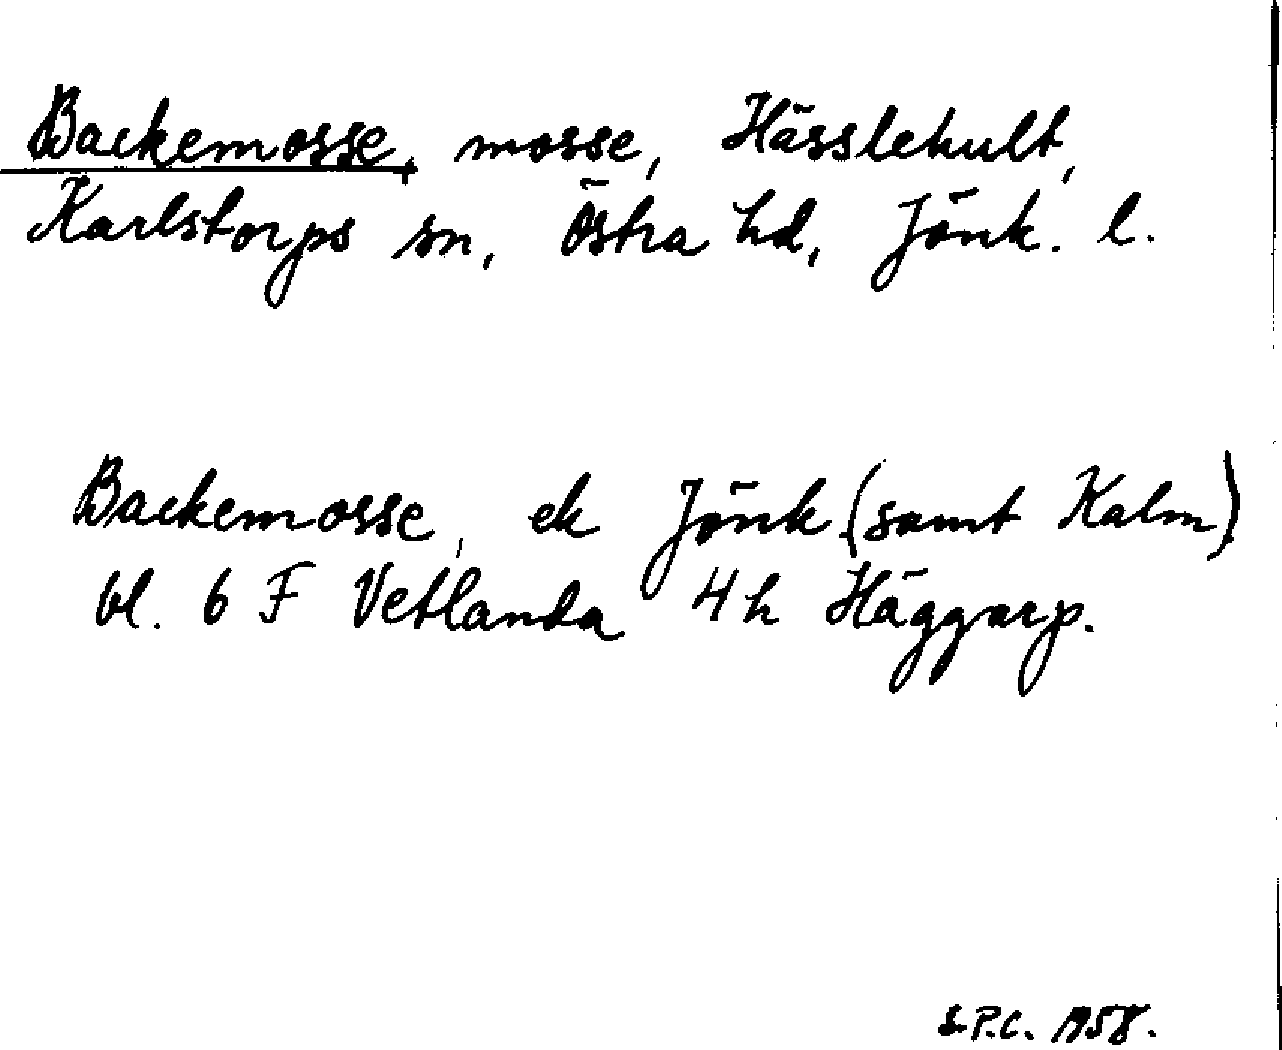 Backemosse, mosse, Hässlehult,
Karlstorps sn, Östra hd, Jönk. l.
Backemosse, ek Jönk (samt Kalm)
bl. 6 F Vetlanda 4h Häggarp.
S.P.C. 1958.